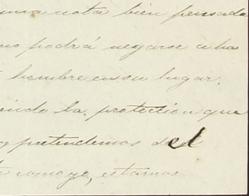 una nota bien pensada
no podrá negarse a ha
hombre en su lugar.
la protection que
pretendemos del
estamos